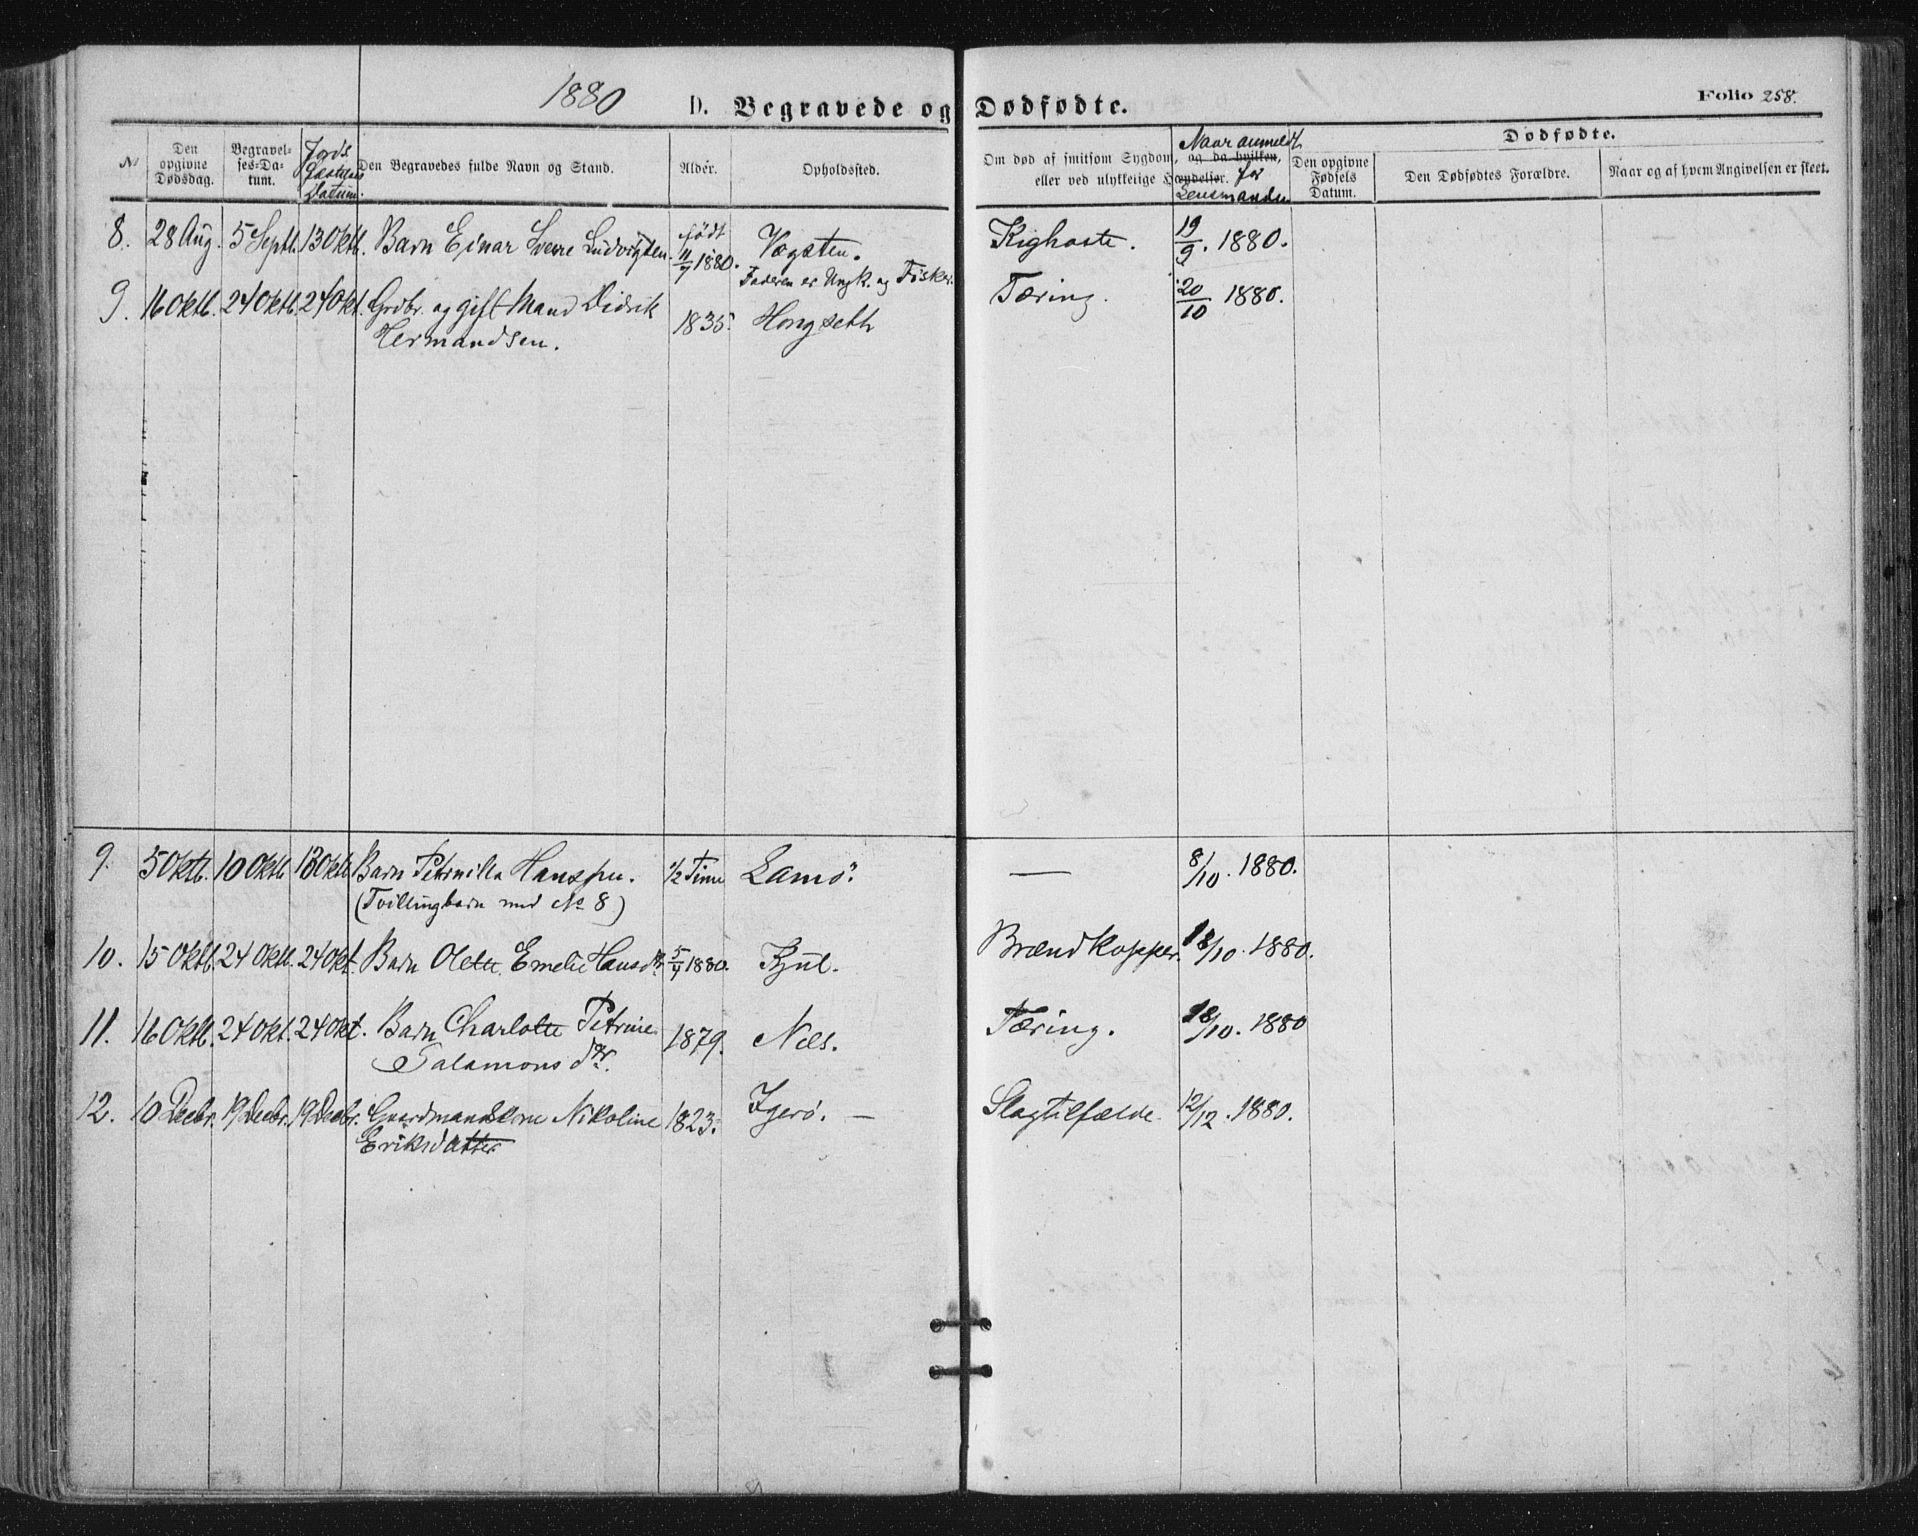 1880 D. Begravede og Dødfødte. Folio 258.
No
Den opgivne Dødsdag.
Begravel-ses-Da-tum.
Jords Festelses Datum.
Den Begravedes fulde Navn og Stand.
Alder.
Opholdssted.
Om død af smitsom Sygdom, og da hvilken,
eller ved ulykkelige Hændelser.
Naar anmeldt
for
Lensmanden
Dødfødte.
Den opgivne Fødsels Datum.
Den Dødfødtes Forældre.
Naar og af hvem Angivelsen er skeet.
8. 28 Aug. 5 Septb. 13 Oktb. Barn Einar Sverre Ludvigsen. født 11/7 1880. Vægsten. Kighoste. 19/9. 1880.
Faderen er Ungk. og Fisker.
9. 16 Oktb. 24 Oktb. 24 Okt. Grdbr. og gift Mand Didrik 1835. Hongseth Tæring. 20/10 1880.
Hermandsen.
9. 5 Oktb. 10 Oktb. 13 Oktb. Barn Petrnilla Hanssen. 1/2 Time Lamø. — 8/10. 1880.
(Tvillingbarn med No 8)
10. 15 Oktb. 24 Oktb. 24 Okt. Barn Olette Emelie Hansdtr. 5/4 1880. Kjul. Brændkopper. 18/10. 1880.
11. 16 Oktb. 24 Okt. 24 Okt. Barn Charlotte Petrine 1879. Næs. Tæring. 18/10. 1880
Salamons dtr.
12. 10 Decbr. 19 Decbr. 19 Decbr. Gaardmandskone Nikoline 1823. Igerø. — Slagtilfælde. 12/12. 1880.
Eriksdatter